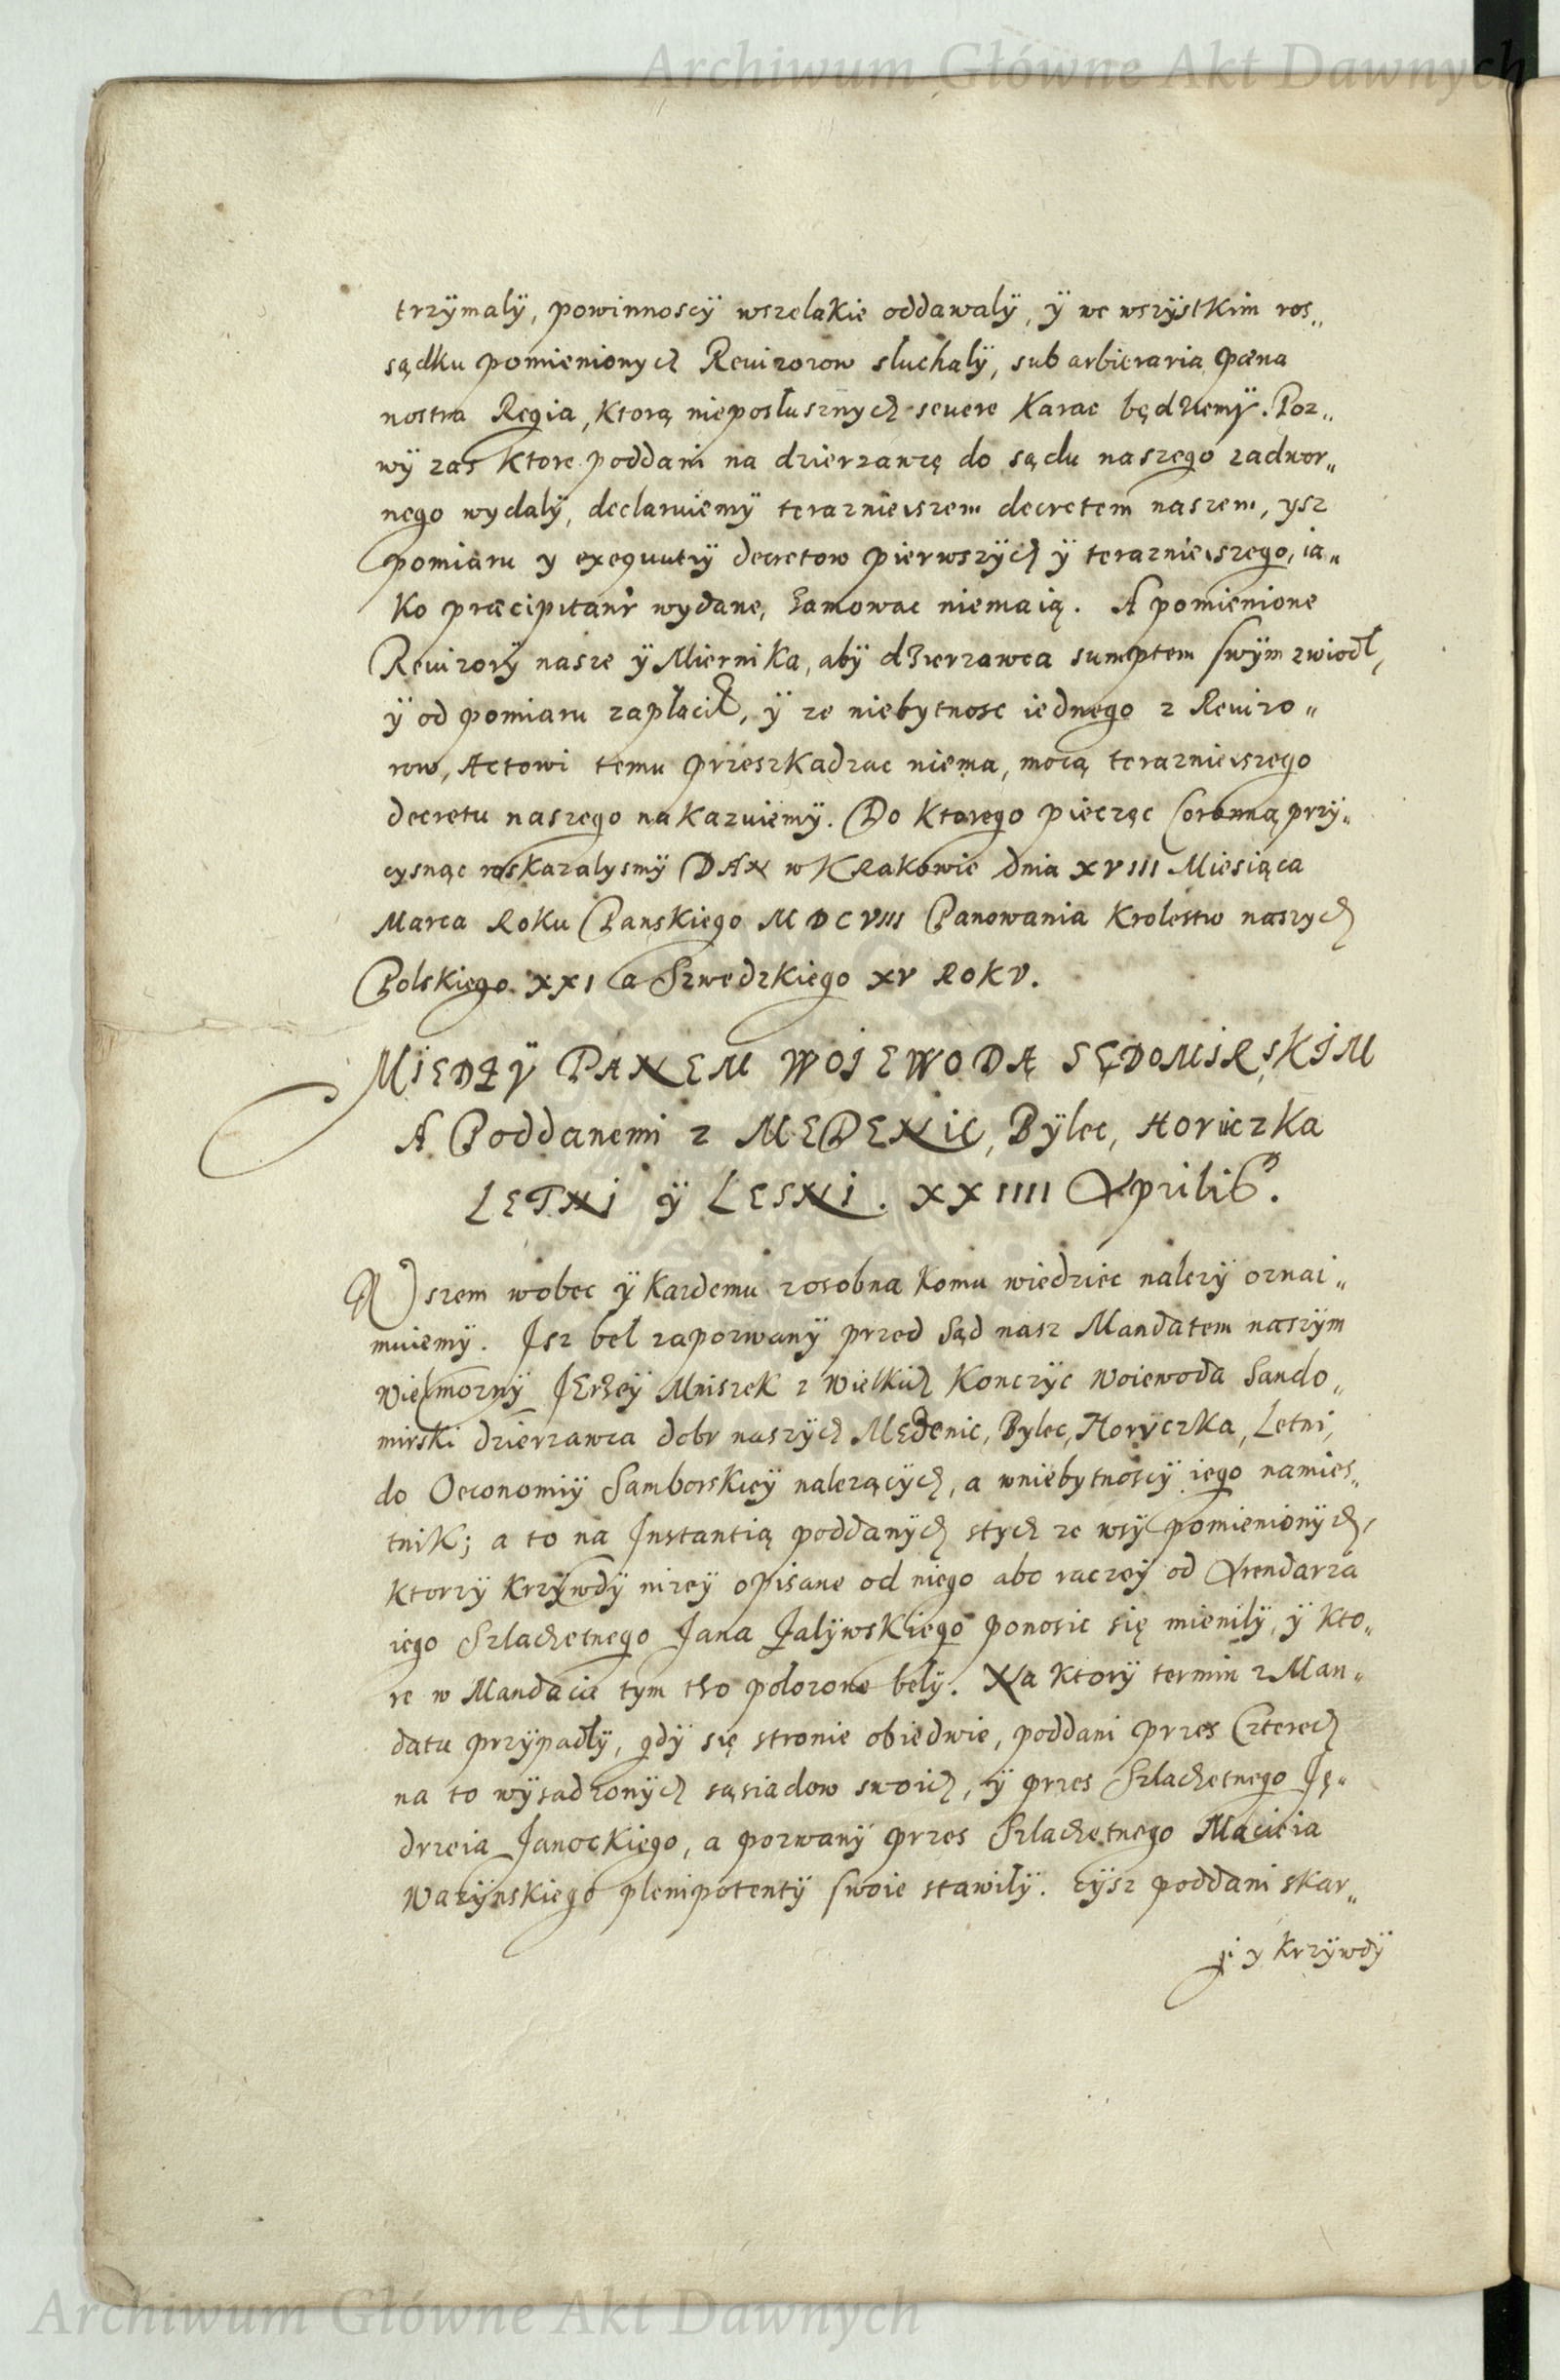 Archiwum Główne Akt Dawnych
trzÿmalÿ, powinnoscÿ wszelakie oddawalÿ, ÿ we wszÿstkim ros„
sądku pomienionych Reuizorow słuchalÿ, sub arbieraria pœna
nostra Regia, ktorą nieposłusznych seuere karac będziemÿ. Poz„
wÿ zas ktore poddani na dzierzawcę do sądu naszego zadwor„
nego wydalÿ, declaruiemÿ teraznieiszem decretem naszem, ysz
pomiaru y exequutiÿ decretow pierwszÿch ÿ terazniejszego, ia„
ko præcipitantr wydane, tamowac niemaią. A pomienione
Reuizorÿ nasze ÿ Miernika, abÿ dzierzawca sumptem swÿm zwiodł,
ÿ od pomiaru zapłacił, ÿ ze niebytnosc iednego z Reuizo„
row, Actowi temu przeszkadzac niema, mocą terazniejszego
decretu naszego nakazuiemÿ. Do ktorego pieczęc Coronną przÿ„
cysnąc roskazalysmÿ DAN w Krakowie dnia XVIII Miesiąca
Marca Roku Panskiego MDCVIII Panowania Krolestw naszych
Polskiego XXI a Szwedzkiego XV ROKV.
MIEDZŸ PANEM WOJEWODĄ SĘDOMIRSKIM
A Poddanemi z MEDENIC, Bÿlec, Horuczka
LETNI ÿ LESNI. XXIIII Aprilis.
Wszem wobec ÿ kazdemu zosobna komu wiedziec nalezÿ oznai„
muiemÿ. Isz bel zapozwanÿ przed Sąd nasz Mandatem naszÿm
Wielmoznÿ Jerzeÿ Mniszek z Wielkich Konczÿc Woiewoda Sando„
mirski dzierzawca dobr naszÿch Medenic, Bylec, Horÿczka, Letni,
do Oeconomiÿ Samborskieÿ nalezącÿch, a wniebytnoscÿ iego namies„
tnik; a to na Instantią poddanÿch stych ze wsÿ pomienionÿch,
ktorzÿ krzÿwdÿ nizeÿ opisane od niego abo raczeÿ od Arendarza
iego Szlachetnego Jana Zalÿwskiego ponosic się mienilÿ, ÿ kto„
re w Mandacie tym tho polozone belÿ. Na ktorÿ termin z Man„
datu przÿpadłÿ, gdÿ się stronie obiedwie, poddani przes Czterech
na to wÿsadzonÿch sąsiadow swoich, ÿ przes Szlachetnego Ję„
drzeia Janockiego, a pozwanÿ przes Szlachetnego Macieia
Wazÿnskiego plenipotentÿ swoie stawiłÿ. Tÿsz poddani skar„
gi y krzÿwdÿ
Archiwum Główne Akt Dawnych